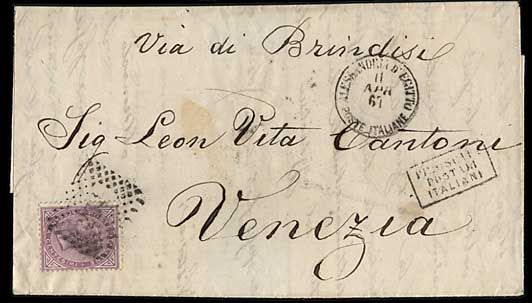 Via di Brindisi
ALESSANDRIA D'EGITTO
11
APR
67
POSTE ITALIANE
Sig Leon Vita Cantoni
PIROSCAFI
POSTALI
ITALIANI
Venezia